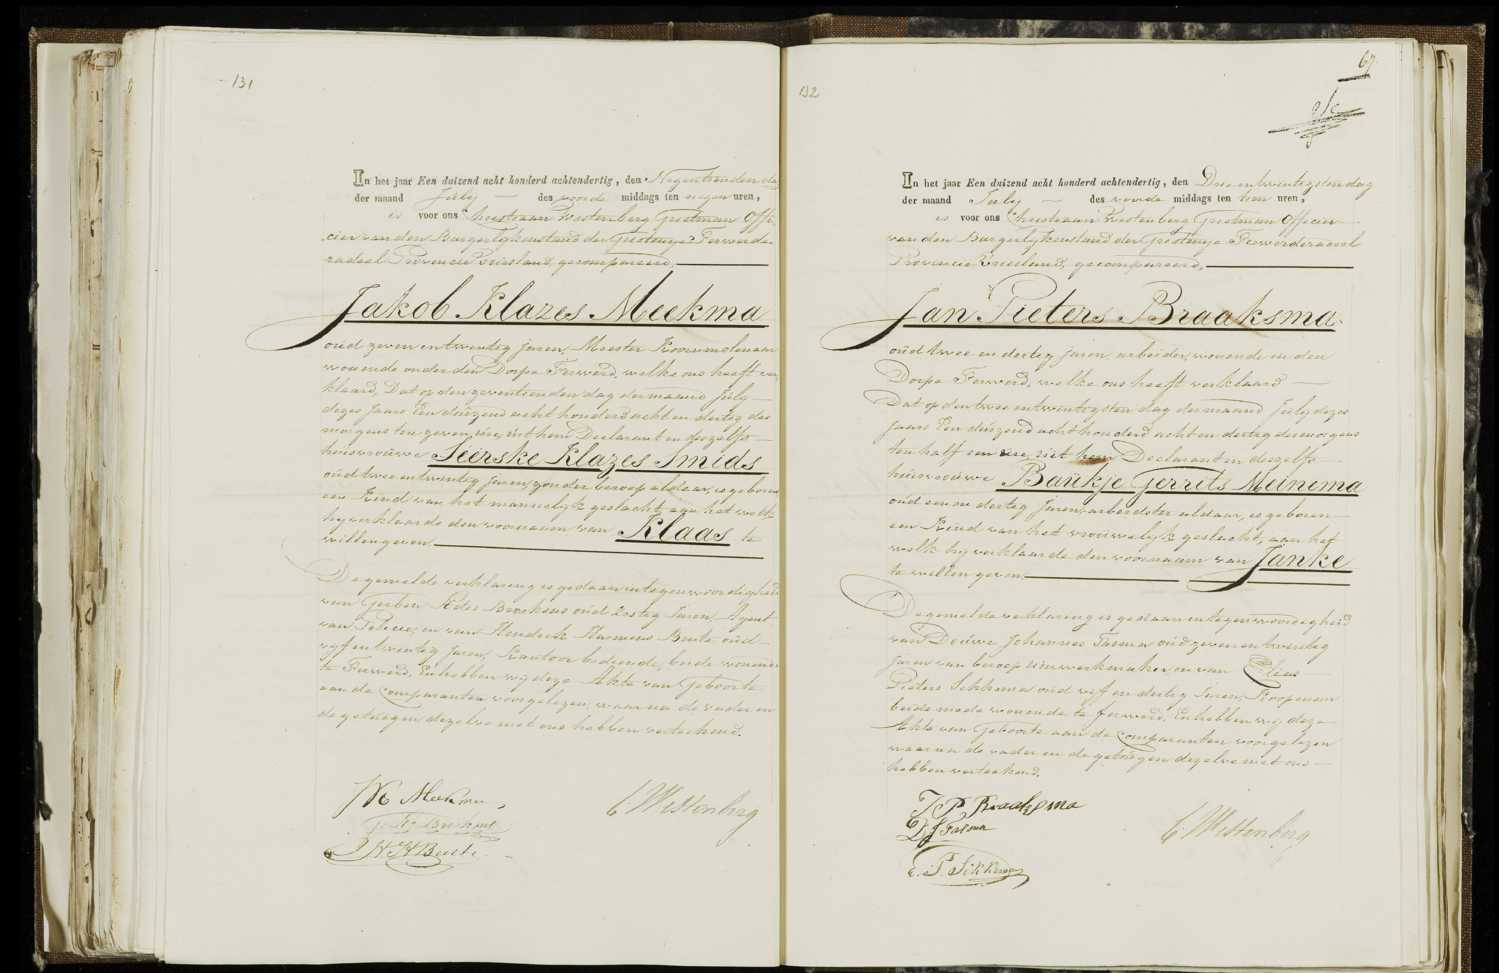 131
In het jaar Een duizend acht honderd achtendertig, den Negentienden dag
der maand July des voorde middags ten negen uren,
is voor ons Christiaan Westenberg Grietman Offi-
cier van den Burgerlyken stand der Grietenye Ferwerde-
radeel Provincie Vriesland, gecompareerd,
Jakob Klazes Meekma
oud zeven en twintig jaren, Meester Koornmolenaar
wonende onder den Dorpe Ferwerd, welke ons heeft ver-
klaard, Dat op den zeventienden dag der maand July
dezes jaars Een duizend acht honderd acht en dertig des
morgens ten zeven ure, uit hem Declarant en deszelfs
huisvrouwe Sierske Klazes Smids
oud twee en twintig jaren, zonder beroep aldaar, is geboren
een Kind van het mannelyk geslacht, aan het welk
hy verklaarde den voornaam van Klaas te
willen geven.
De gemelde verklaring is gedaan in tegenwoordigheid
van Gerben Ades Brechens oud zestig Jaren, Agent
van Policie, en van Hendrik Harmens Bente oud
vyf en twintig Jaren, Kantoor bediende, beide wonende
te Ferwerd, En hebben wij deze Akte van Geboorte
aan de Comparanten voorgelezen, waarna de vader en
de getuigen dezelve met ons hebben verteekend.
JK Meekma
C. Westenberg
H H Bente
132
67
In het jaar Een duizend acht honderd achtendertig, den Drie en twintigsten dag
der maand July des voorde middags ten tien uren,
is voor ons Christiaan Westenberg Grietman Officier
van den Burgerlyken stand der Grietenye Ferwerderadeel
Provincie Vriesland, gecompareerd,
Jan Pieters Braaksma
oud twee en dertig jaren, arbeider, wonende in den
Dorpe Ferwerd, welke ons heeft verklaard
Dat op den twee en twintigsten dag der maand July dezes
jaars Een duizend acht honderd acht en dertig des morgens
ten half een ure, uit hem Declarant en deszelfs
huisvrouwe Baukje Gerrits Meinema
oud een en dertig Jaren, arbeidster aldaar, is geboren
een Kind van het vrouwelyk geslacht, aan het
welk hy verklaarde den voornaam van Janke
te willen geven.
De gemelde verklaring is gedaan in tegenwoordigheid
van Douwe Johannes Tasma oud zeven en twintig
Jaren van beroep uurwerkmaker, en van Elias
Pieters Sikkema oud vyf en dertig Jaren, Koopman
beide mede wonende te Ferwerd. En hebben wij deze
Akte van Geboorte aan de Comparanten voorgelezen
waarna de vader en de getuigen dezelve met ons
hebben verteekend.
J P Braaksma
D J Tasma
C. Westenberg
E. P. Sikkema